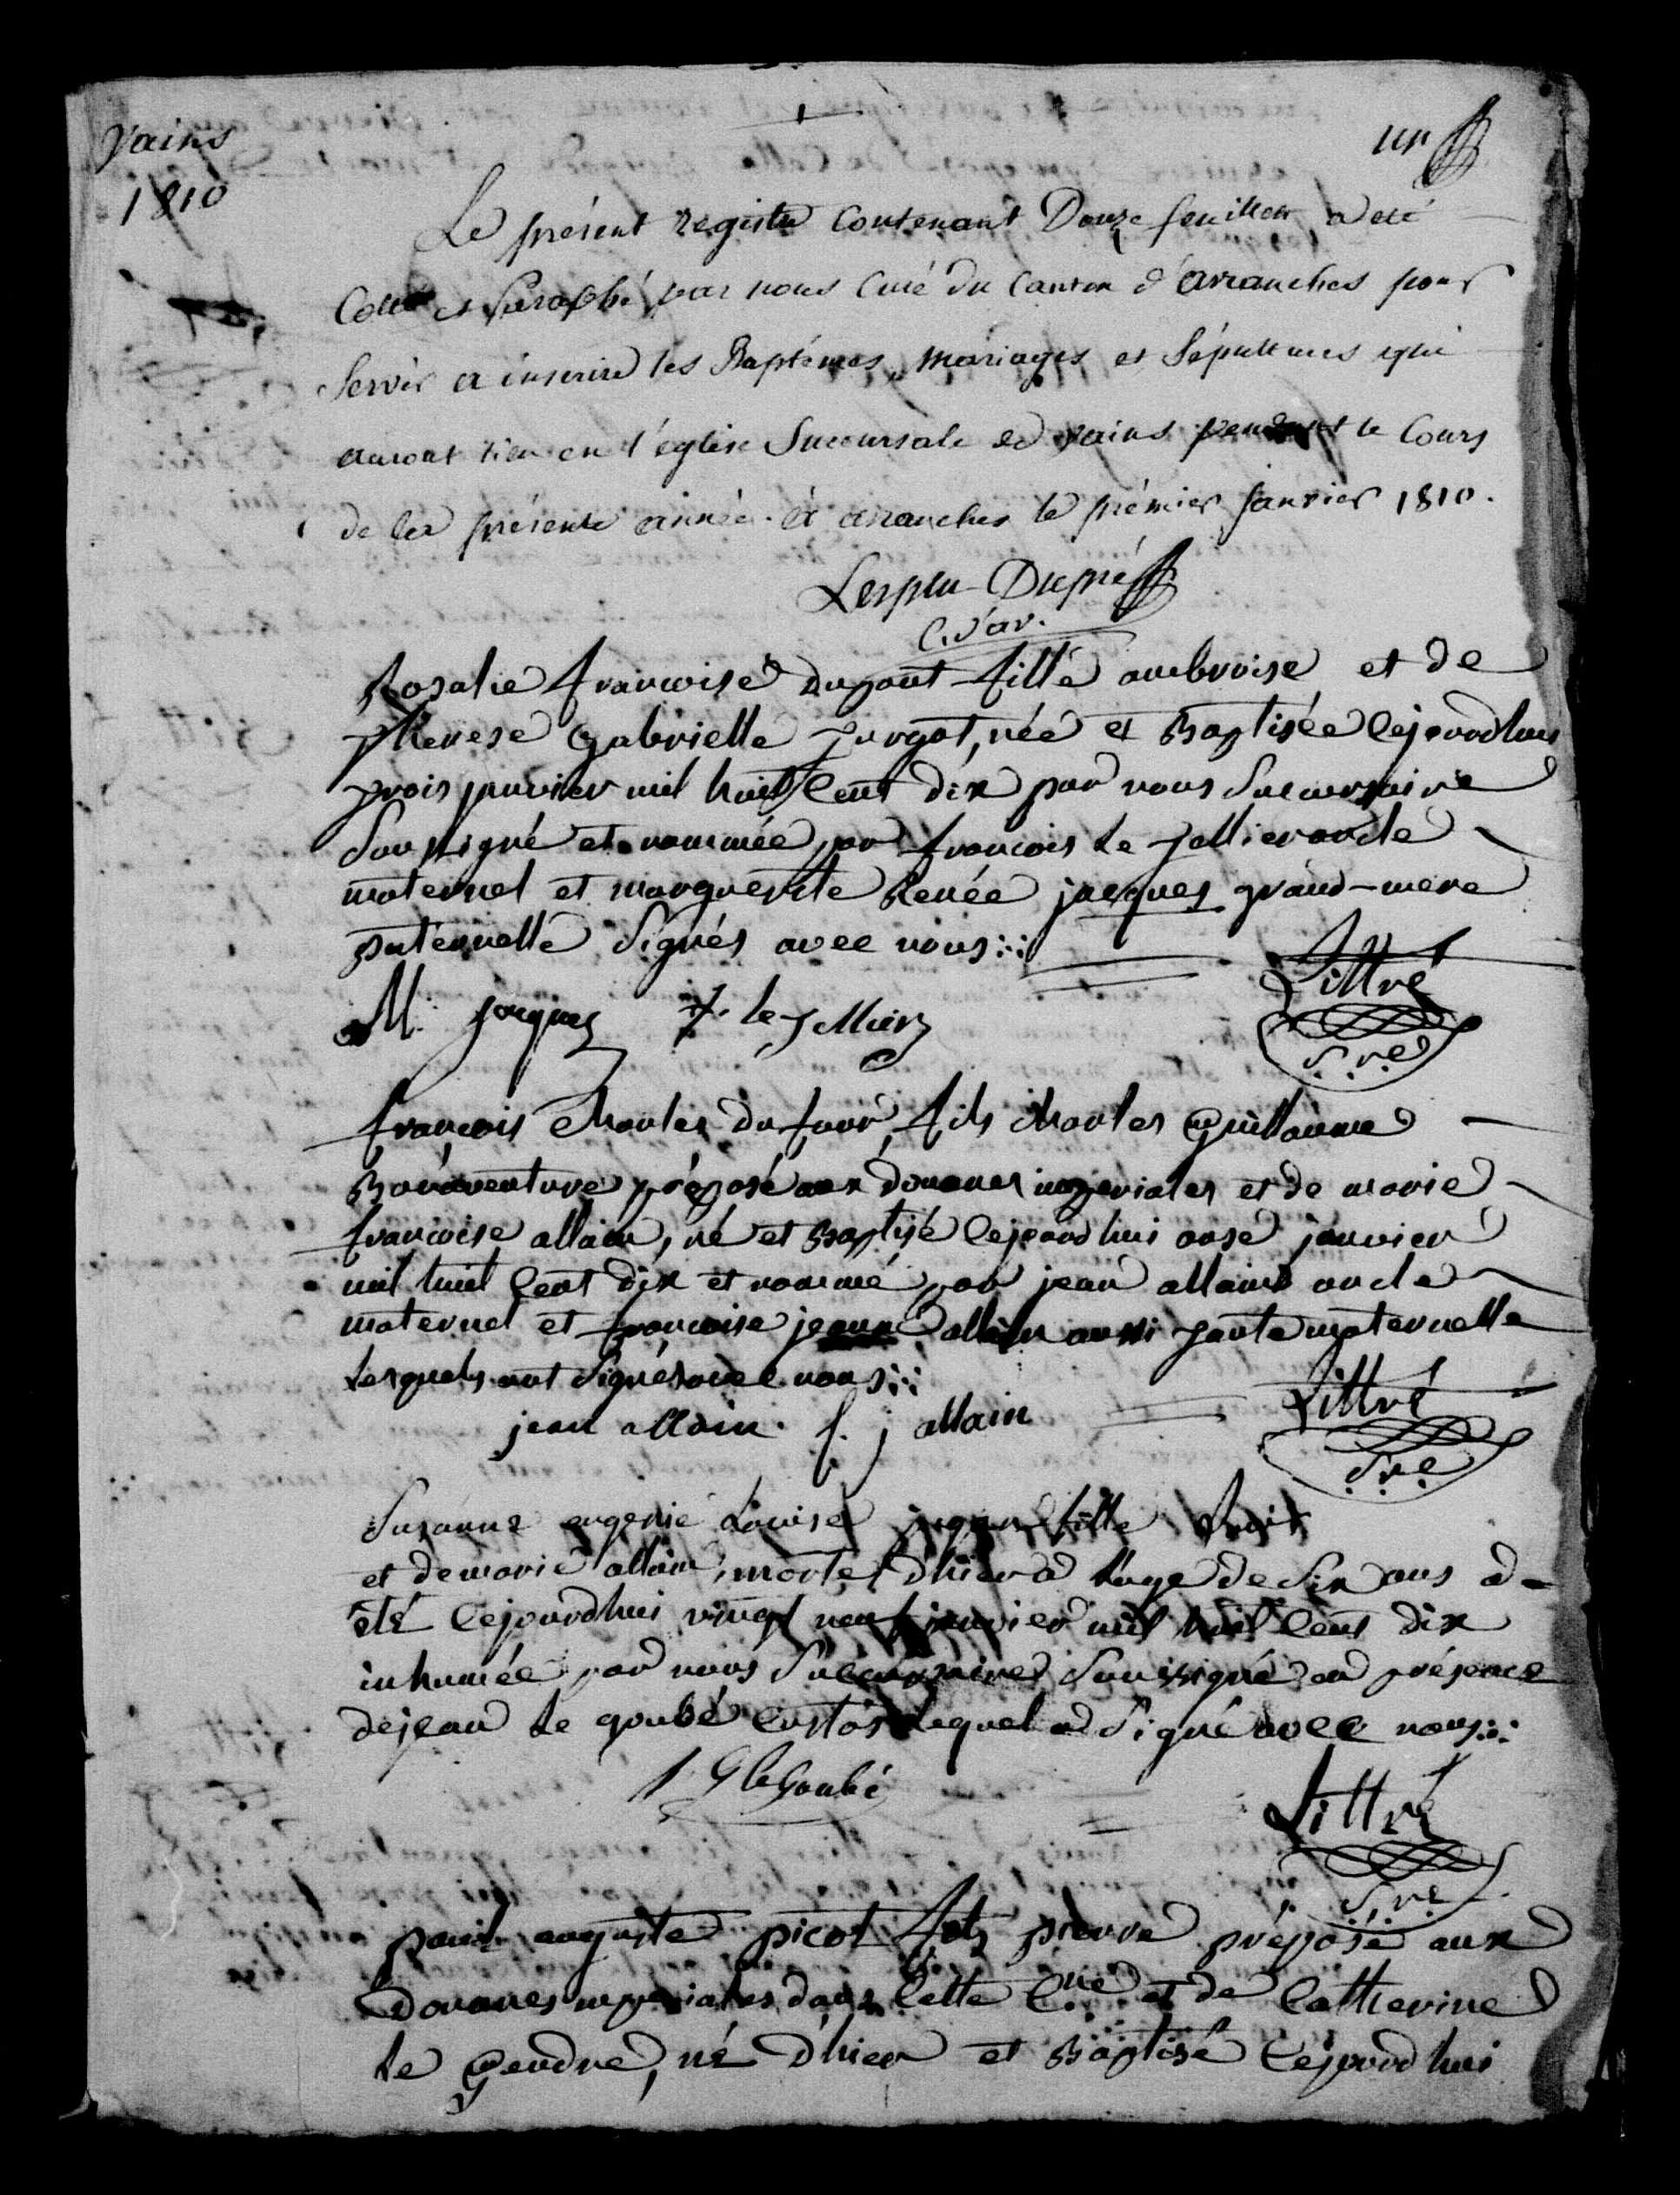 Vains
1810
un
Le présent registre contenant Douze feuillets, a été
Cotté et Paraphé par nous Curé du Canton d'avranches pour
Servir à inscrire les Baptêmes, Mariages et Sépultures qui
auront lieu en l'église Succursale de Vains pendant le Cours
de la présente année. à avranches le prémier Janvier 1810.
Lesplu-Dupré
C. d'av.
Rosalie francoise dupont fille ambroise et de
therese Gabrielle Turgot, née et Baptisée Cejourdhui
trois janvier mil huit Cent dix par nous Succursaire
Soussigné et nommée par francois Le Tellier oncle
maternel et marguerite Renée jacques grand-mere
paternelle Signés avec nous
M. Jacques f. le Tellier
Littré
S.re
francois Charles dufour fils charles Guillaume
Bonaventure préposé aux douanes imperiales et de marie
francoise allain, né et Baptisé Cejourdhui onse janvier
mil huit Cent dix et nommé par jean allain oncle
maternel et francoise jeanne allain aussi tante maternelle
Lesquels ont Signés avec nous
jean allain. f. j allain
Littré
S.re
Susanne eugenie Louise fille
et de marie allain, morte d'hier à l'age de Six ans a
été Cejourdhui vingt neuf janvier mil huit Cent dix
inhumée par nous Succursaire Soussigné en présence
de jean Le goubé Custos Lequel a Signé avec nous
J G le Goubé
Littré
S.re
auguste picot fils pierre préposé aux
Douanes imperiales dans Cette C.ne et de Catherine
Le Gendre, né d'hier et Baptisé Cejourdhui